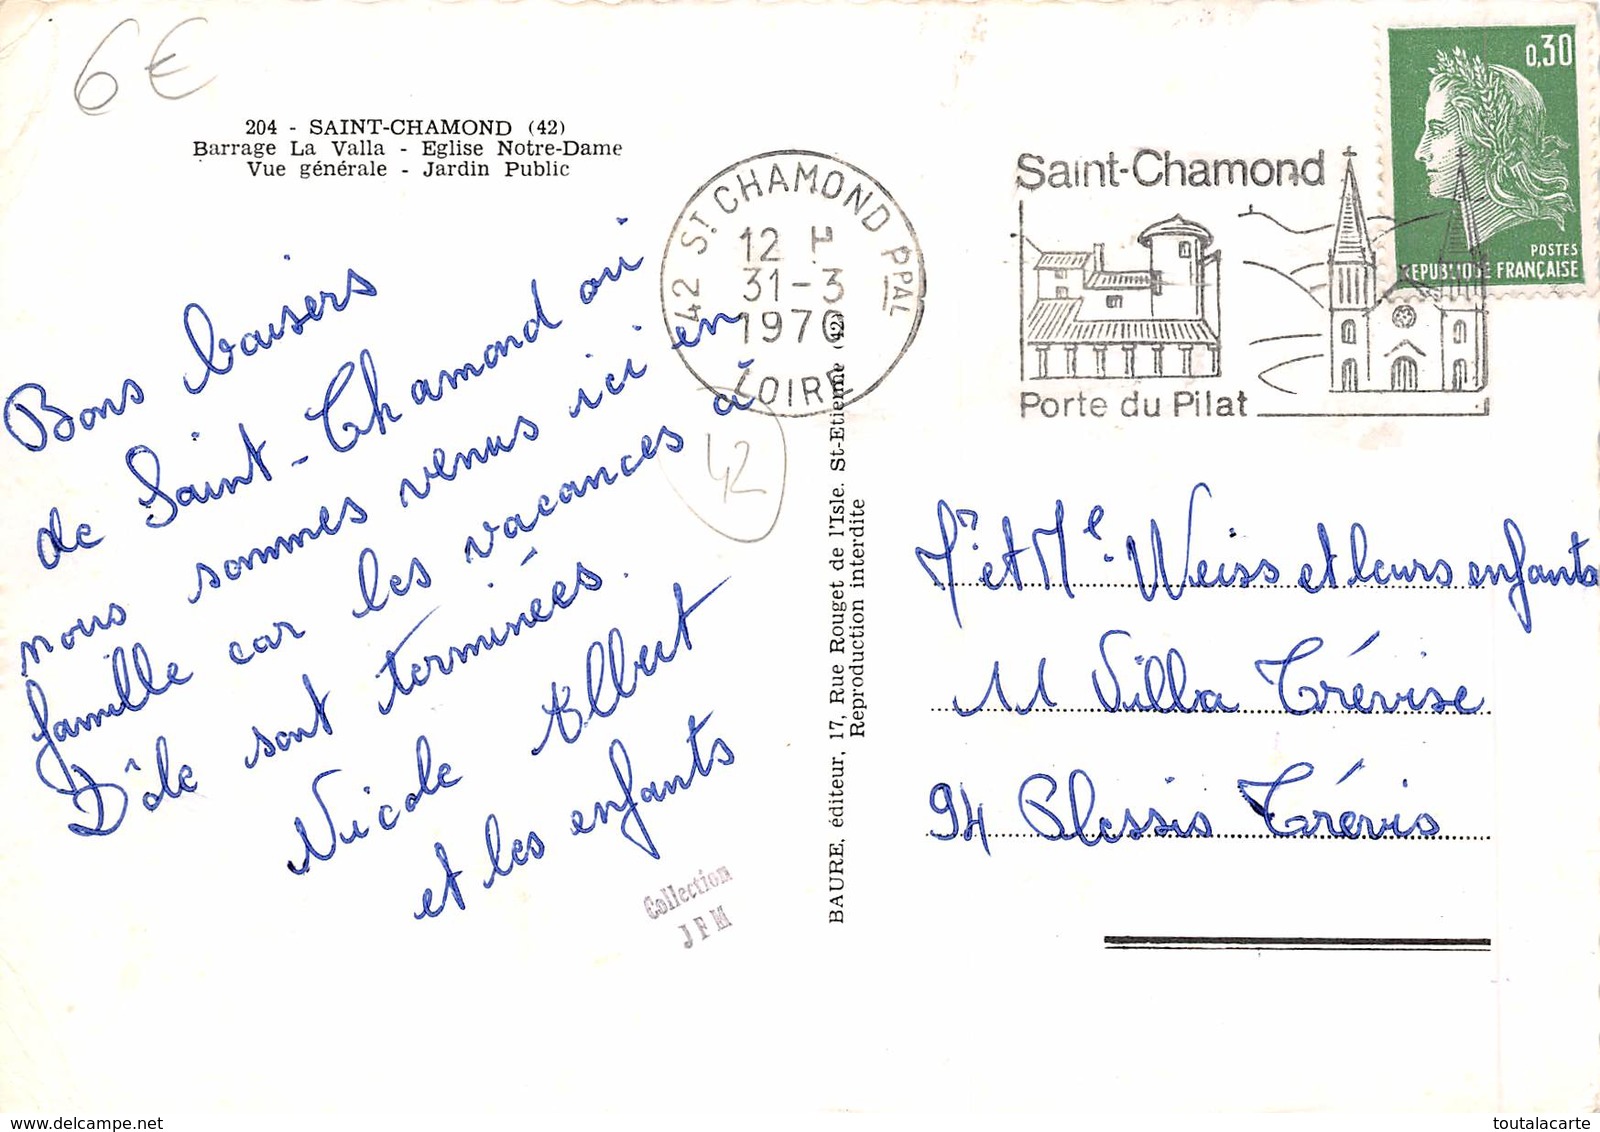 6€
204 - SAINT-CHAMOND (42)
Barrage La Valla - Eglise Notre-Dame
Vue générale - Jardin Public
Bons baisers
de Saint-Chamond où
nous sommes venus ici en
famille car les vacances à
Dôle sont terminées.
Nicole Albert
et les enfants
42
Collection
JFM
42 ST CHAMOND PPAL
12 H
31-3
1970
LOIRE
BAURE, éditeur, 17, Rue Rouget de l'Isle. St-Etienne (42)
Reproduction interdite
Saint-Chamond
Porte du Pilat
0,30
POSTES
REPUBLIQUE FRANÇAISE
Mr et Me Weiss et leurs enfants
11 Villa Trévise
94 Plessis Trévis
delcampe.net
toutalacarte